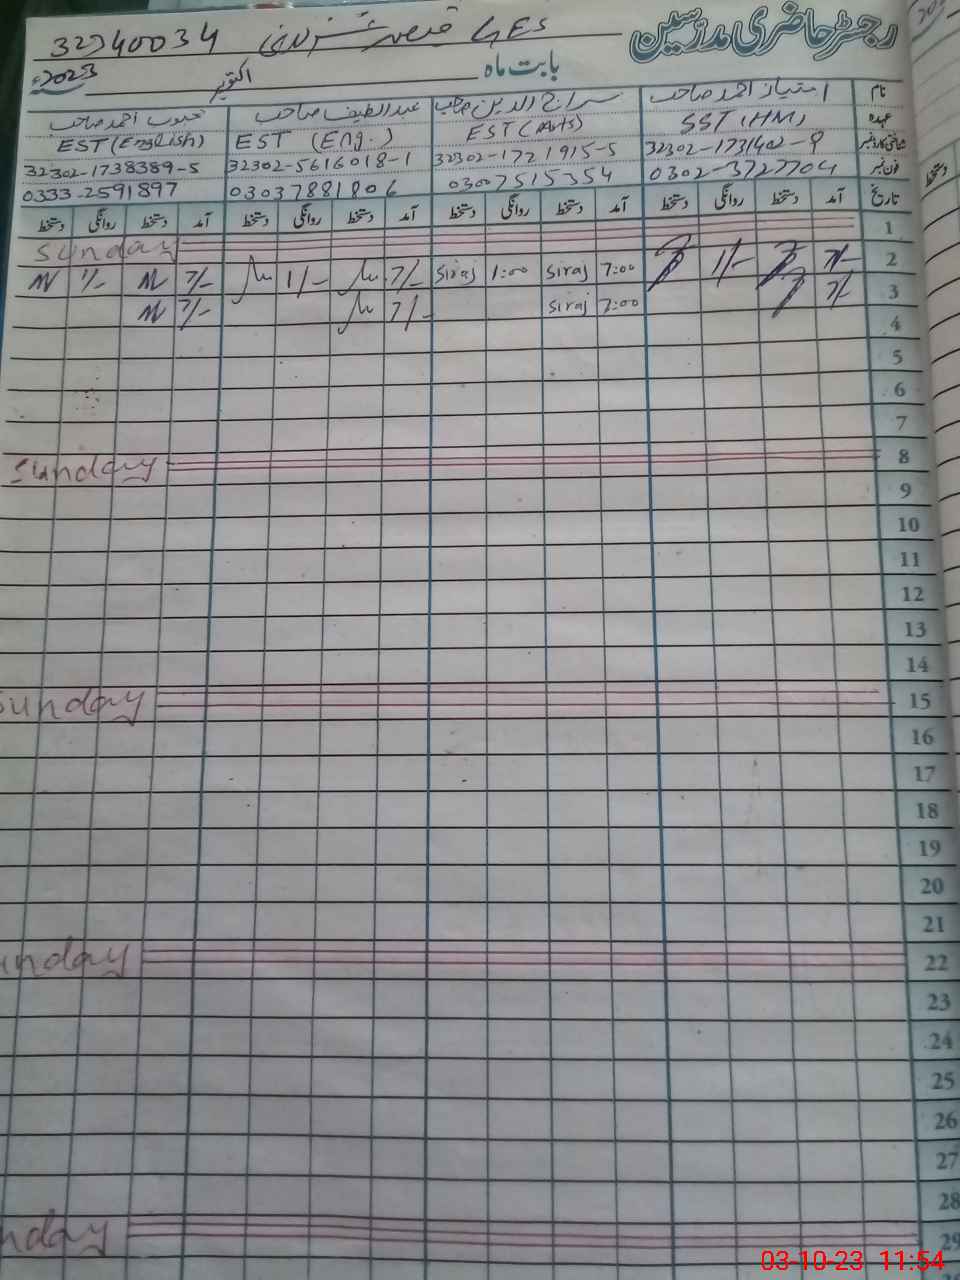 رجسٹر حاضری مدرسین
GES قصبہ 32340034
بابت ماہ اکتوبر 2023ء
نام امتیاز احمد صاحب سراج الدین صاحب عبداللطیف صاحب محبوب احمد صاحب
عہدہ SST (HM) EST (Arts) EST (Eng.) EST (English)
شناختی کارڈ نمبر 32302-1731402-9 32302-1721915-5 32302-5616018-1 32302-1738389-5
فون نمبر 0302-3727704 03007515354 03037881806 0333-2591897
تاریخ آمد دستخط روانگی دستخط آمد دستخط روانگی دستخط آمد دستخط روانگی دستخط آمد دستخط روانگی دستخط
1 Sunday
2 7/- 1/- 7:00 Siraj 1:00 Siraj 7/- 1/- 7/- 1/-
3 7/- 7:00 Siraj 7/- 7/-
4
5
6
7
8 Sunday
9
10
11
12
13
14
15 Sunday
16
17
18
19
20
21
22 unday
23
24
25
26
27
28
29 nday
03-10-23 11:54